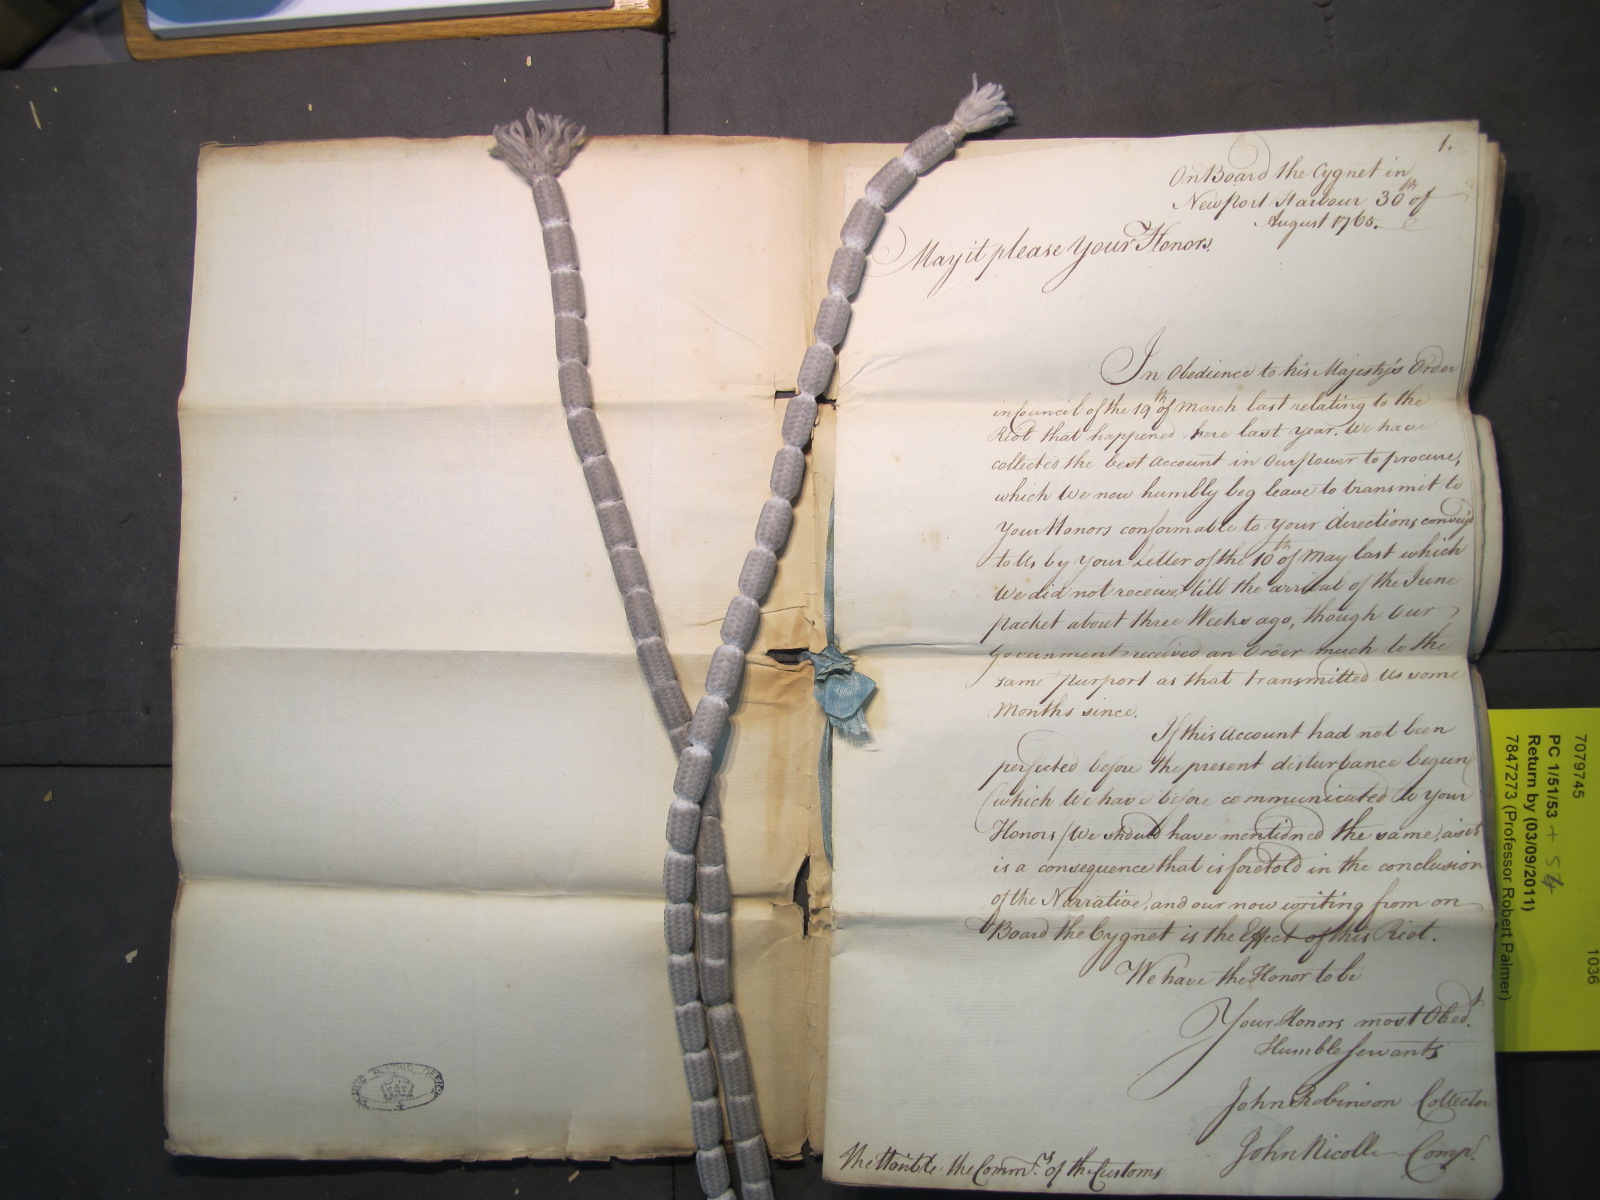 1.
On Board the Cygnet in
Newport Harbour 30th of
August 1765.
May it please Your Honors.
In Obedience to his Majesty's Order
in Council of the 19th of March last relating to the
Riot that happened here last year. We have
collected the best Account in Our power to procure,
which We now humbly beg leave to transmit to
Your Honors conformable to Your directions convey'd
to Us by Your Letter of the 10th of May last which
We did not receive till the arrival of the June
packet about three Weeks ago, though Our
Government received an Order much to the
same Purport as that transmitted Us some
Months since.
If this Account had not been
perfected before the present disturbance begun
(which We have before communicated to Your
Honors) We should have mentioned the same, as it
is a consequence that is foretold in the conclusion
of the Narrative, and our now writing from on
Board the Cygnet is the Effect of this Riot.
We have the Honor to be
Your Honors most Obedt.
Humble Servants
John Robinson Collector
John Nicoll Compr.
The Honble the Commrs. of the Customs
PUBLIC RECORD OFFICE
7079745 1036
PC 1/51/53 + 54
Return by (03/09/2011)
7847273 (Professor Robert Palmer)